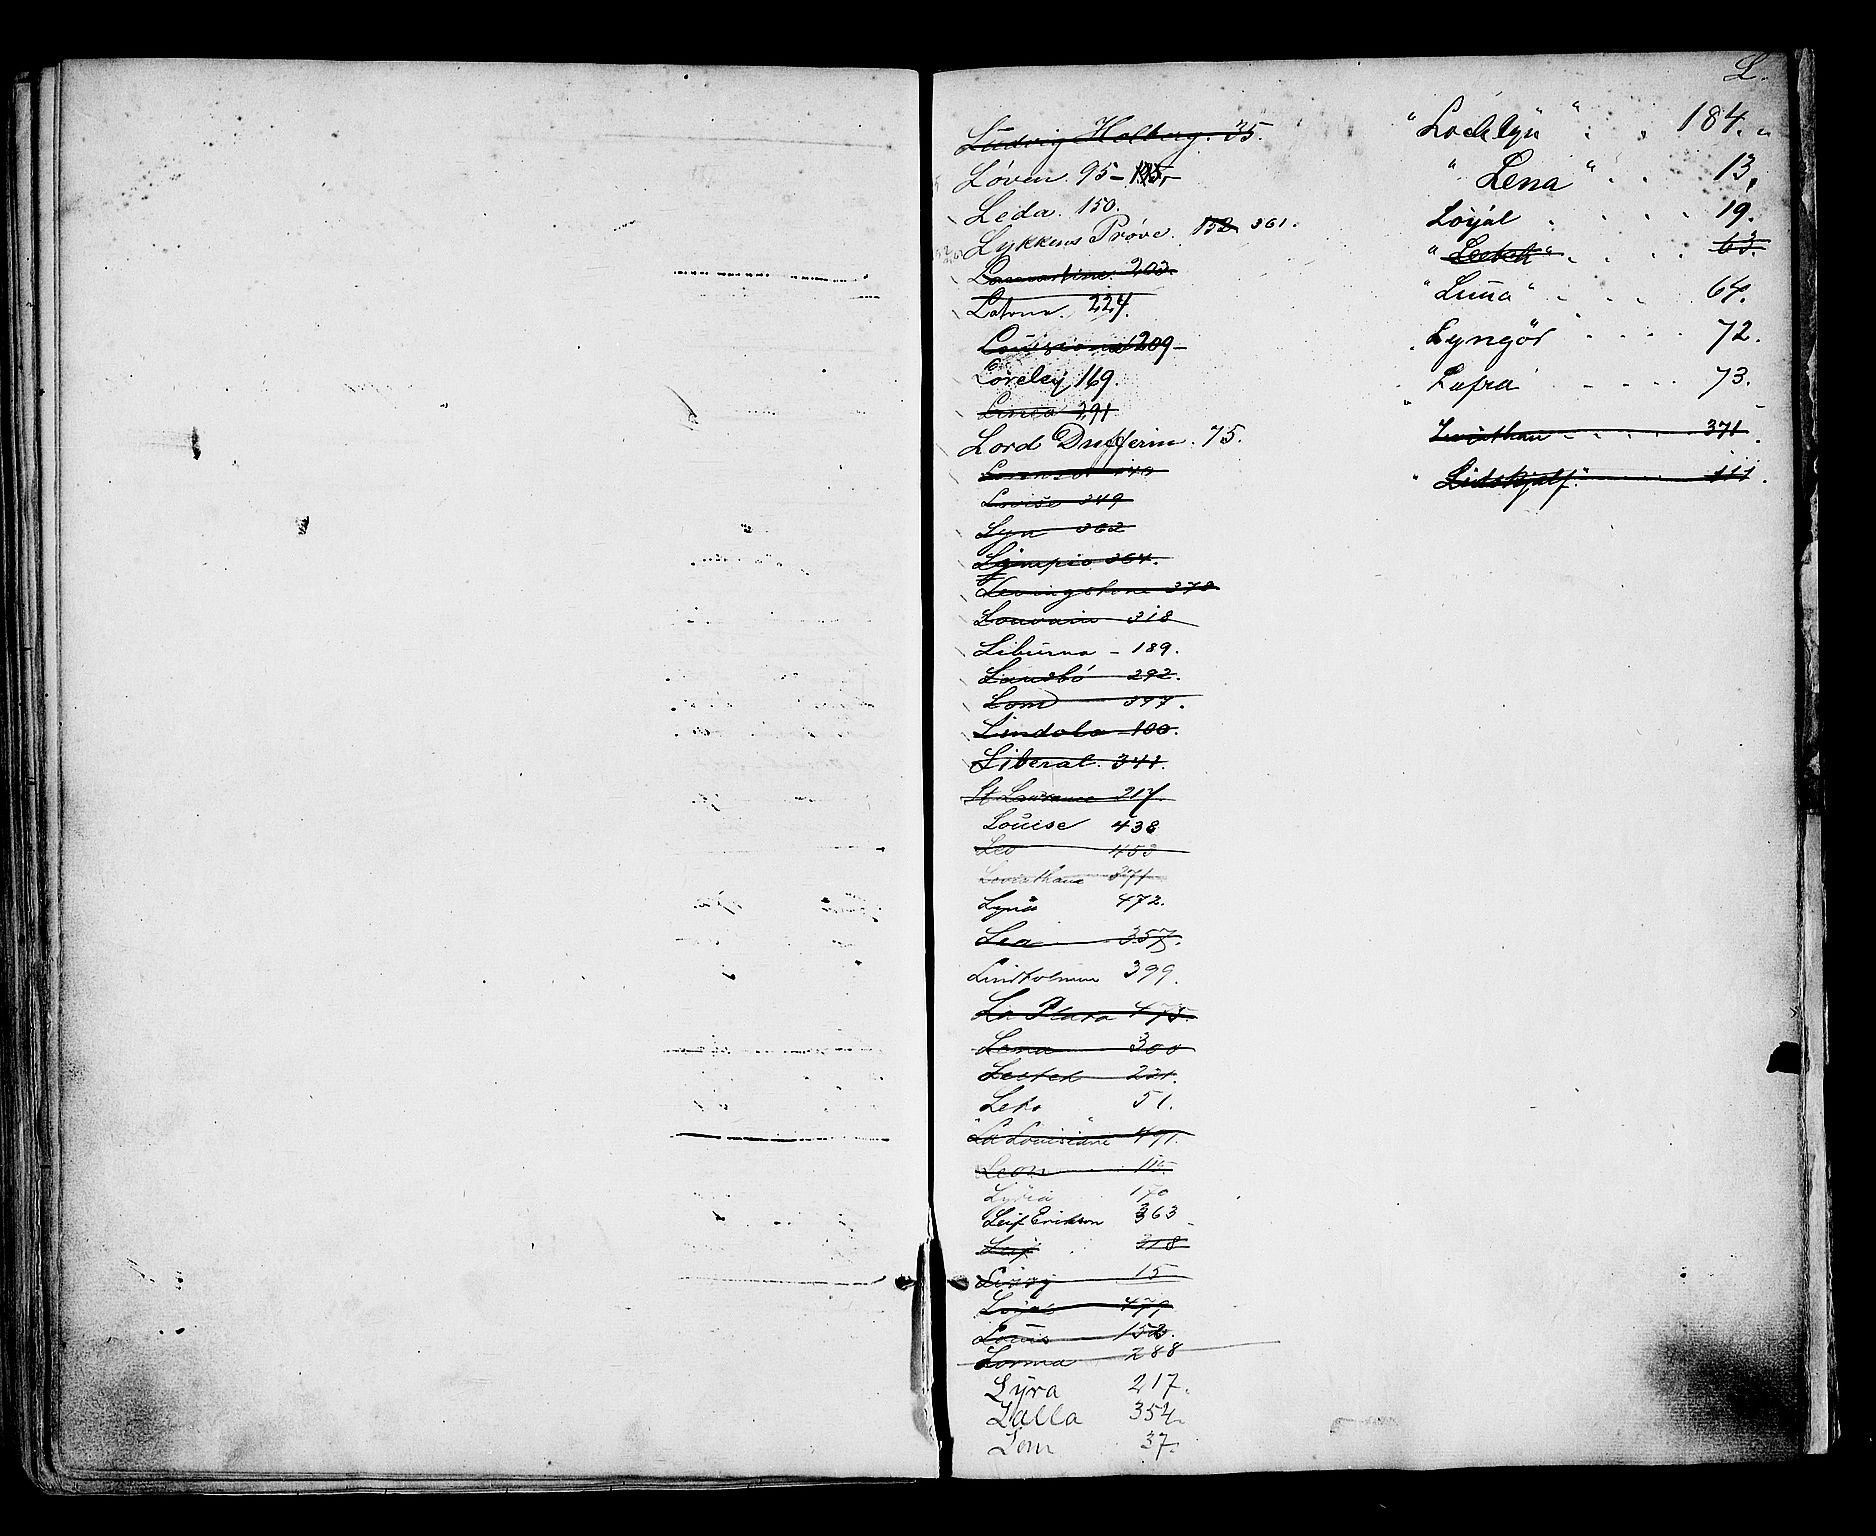 L.
Ludvig Holberg. 35.
Løven. 95 –
Leda. 150.
Lykkens Prøve. 152 361.
Lamartine. 203.
Latona. 224.
Louisiana 209 –
Loreley 169.
Linea 291
Lord Dufferin. 75.
Louise 349
Lyn 362
Lympia 364.
Levingstone 378
Louvain 318
Liburna – 189.
Landbó 292.
Lom 397.
Lindola 100.
Liberal. 341.
St Lawrance 217.
Louise 438
Leo 453
Leviathan 371
Lyna 472.
Lea 357.
Lindholmen 399.
La Plata 475.
Lena 300
Lester 221.
Leto 51.
"La Louisiane" 491.
Leon 116
Lydia 170
Leif Erikson 363
Leif 318
Lizzy 15
Loyal 479
Louis 152.
Lorma 288
Lyra 217.
Lalla 354.
Lom 37.
"Lochlyn" 184.
"Lena" 13.
Loyal 19.
63.
"Luna" 64.
Lyngör 72.
Lufra 73.
Leviathan 371.
"Lidskjalf" 111.